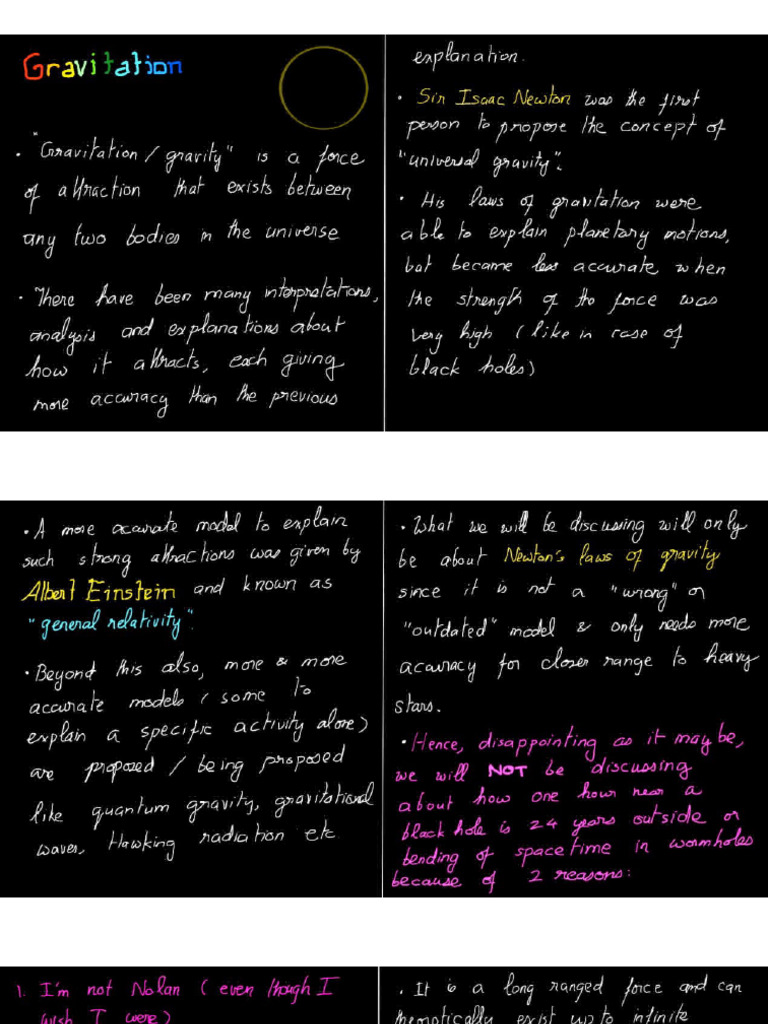 Gravitation
• "Gravitation / gravity" is a force
of attraction that exists between
any two bodies in the universe
• There have been many interpretations,
analysis and explanations about
how it attracts, each giving
more accuracy than the previous
explanation.
• Sir Isaac Newton was the first
person to propose the concept of
"universal gravity".
• His laws of gravitation were
able to explain planetary motions,
but became less accurate when
the strength of the force was
very high (like in case of
black holes)
• A more accurate model to explain
such strong attractions was given by
Albert Einstein and known as
"general relativity".
• Beyond this also, more & more
accurate models (some to
explain a specific activity alone)
are proposed / being proposed
like quantum gravity, gravitational
waves, Hawking radiation etc.
• What we will be discussing will only
be about Newton's laws of gravity
since it is not a "wrong" or
"outdated" model & only needs more
accuracy for closer range to heavy
stars.
• Hence, disappointing as it may be,
we will NOT be discussing
about how one hour near a
black hole is 24 years outside or
bending of space time in wormholes
because of 2 reasons:
1. I'm not Nolan (even though I
wish I were)
• It is a long ranged force and can
theoretically exist upto infinite